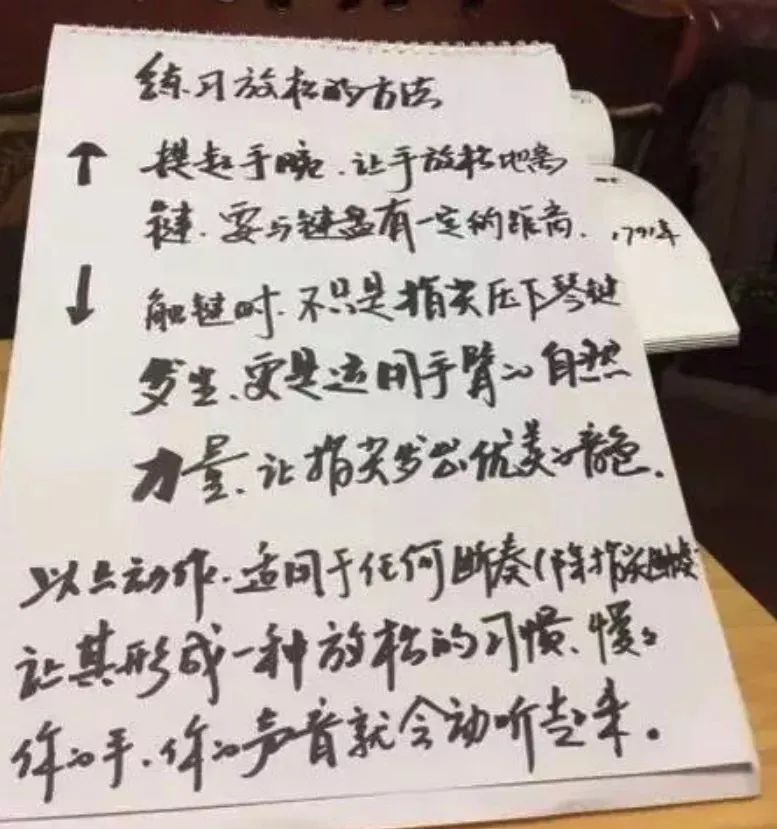 练习放松的方法
↑ 提起手腕、让手放松地离
键、要与键盘有一定的距离、
↓ 触键时、不只是指尖压下琴键
发生、更是运用手臂的自然
力量、让指尖发出优美的音色。
以上动作、适用于任何断奏(除指尖断奏)
让其形成一种放松的习惯、慢慢
你的手、你的声音就会动听起来。